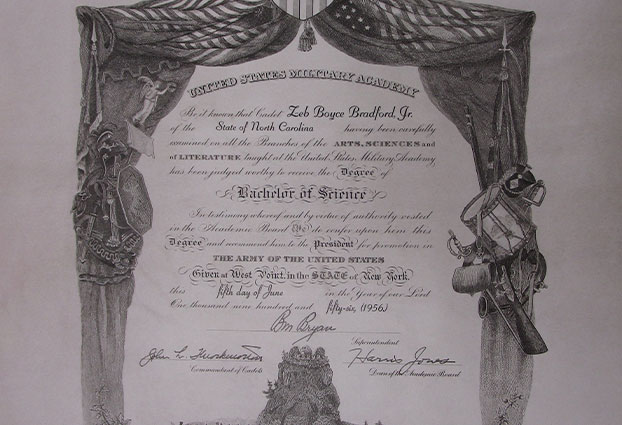 UNITED STATES MILITARY ACADEMY
Be it known that Cadet Zeb Boyce Bradford, Jr.
of the State of North Carolina having been carefully
examined on all the Branches of the ARTS, SCIENCES and
of LITERATURE taught at the United States Military Academy
has been judged worthy to receive the Degree of
Bachelor of Science
In testimony whereof and by virtue of authority vested
in the Academic Board We do confer upon him this
Degree and recommend him to the President for promotion in
THE ARMY OF THE UNITED STATES
Given at West Point, in the STATE of New York.
this fifth day of June in the Year of our Lord
One thousand nine hundred and fifty-six, (1956)
Bm Bryan
Superintendent
John L.
Harris Jones
Commandant of Cadets
Dean of the Academic Board